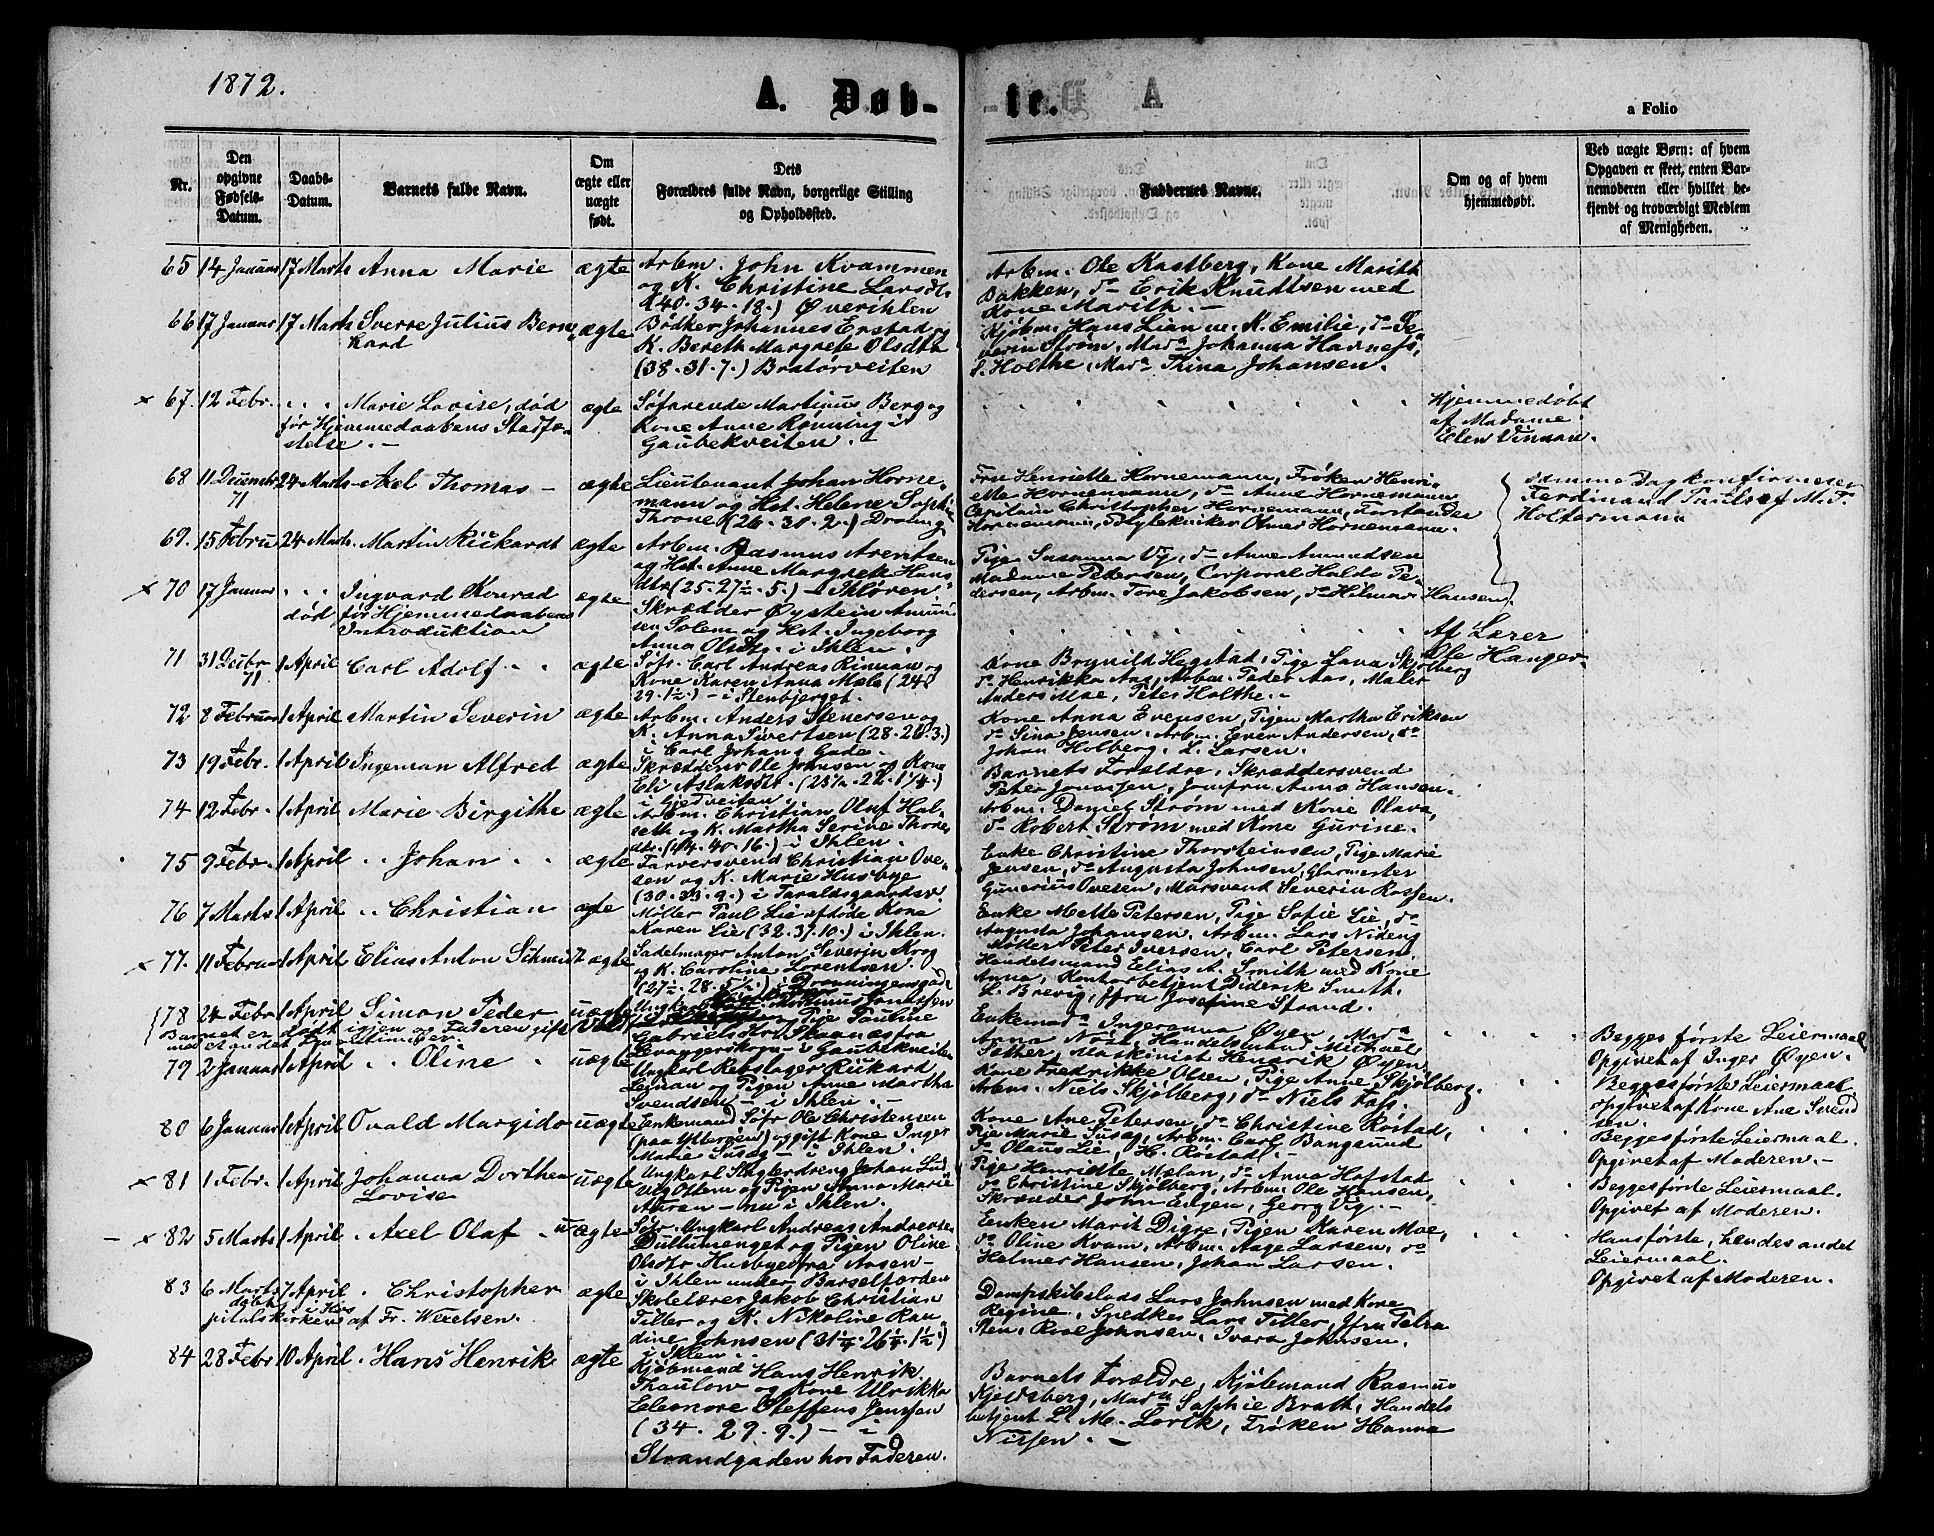 1872.
A. Døb-
te.
a Folio
Nr.
Den opgivne Fødsels-Datum.
Daabs-Datum.
Barnets fulde Navn.
Om ægte eller uægte født.
Dets Forældres fulde Navn, borgerlige Stilling og Opholdssted.
Faddernes Navne.
Om og af hvem hjemmedøbt.
Ved uægte Børn: af hvem Opgaven er skeet, enten Barnemoderen eller hvilket bekjendt og troværdigt Medlem af Menigheden.
65 14 Januar 17 Marts Anna Marie ægte Arbm. John Kvammen
og K. Christine Larsdtr
(40. 34. 18.) Øverihlen
Arbm. Ole Kastberg, Kone Marith
Bakken, do Erik Knudtsen med
Kone Marith. -
66 17 Januar 17 Marts Sverre Julius Bern-
hard ægte Bødker Johannes Erstad og
K. Bereth Margrete Olsdtr
(38. 31. 7.) Bratørveiten
Kjøbm. Hans Lian m. K. Emilie, do Se-
verin Strøm, Mada Johanna Havness,
L. Holthe, Mada Thina Johansen.
67. 12 Febr. Marie Lovise, død
før Hjemmedaabens Stadfæ-
stelse. - ægte Søfarende Martinus Berg og
Kone Anne Rønning i
Gaubekveiten. -
Hjemmedøbt
af Madame
Elen Vinnan.
68 11 Decembr 71 24 Marts Axel Thomas - ægte Lieutenant Johan Horne-
mann og Hst. Helene Sophie
Throne (26. 30. 2.)
Fru Henriette Hornemann, Frøken Henri-
ette Hornemann, do Anne Hornemann
Capitain Christopher Hornemann, Forstander
Hornemann, Polytekniker Olmer Hornemann.
samme Dag konfirmeser
Ferdinand
Holtermann
69. 15 Febru 24 Marts Martin Rickardt ægte Arbm. Rasmus Arentsen
og Hst. Anne Margrete Hans-
dtr (25. 27½. 5.) - Ihløren.
Pige Susanna Vig, do Anne Amundsen
Madame Pedersen, Corporal Haldo Pe-
dersen, Arbm. Tore Jakobsen, do Hilmar Hansen.
70 17 Januar Ingvard Konrad
død før Hjemmedaabens
Introduktion ægte Skrædder Øystein Amun-
sen Solem og Hst. Ingeborg
Anna Olsdtr. i Ihlen.
Af Lærer
Ole Hanger.
71 31 Decbr 71 1 April Carl Adolf ægte Søf. Carl Andreas Rinnan og
Kone Karen Anna Mæla (24.
29. 1½.) - i Stenbjerget.
Kone Brynild Hegstad, Pige Lava Skjølberg
do Henrikka Aas, Arbm. Peder Aas, Maler
Anders Moe, Peter Holthe. -
72 8 Februar 1 April Martin Severin ægte Arbm. Anders Stenersen og
K. Anna Sivertsen (28. 26. 3.)
i Carl Johans Gade.
Kone Anna Evensen, Pigen Martha Eriksen
do Sina Jensen, Arbm. Even Andersen, do
Johan Holberg, L. Larsen.
73 19 Febr. 1 April Ingeman Alfred ægte Skrædder Ole Johnsen og Kone
Eli Aslaksdtr. (25½. 22. 1¼.)
i Gjedveiten.
Barnets Forældre, Skræddersvend
Peter Jonassen, Jomfru Anna Hansen.
74 12 Febr. 1 April Marie Birgithe ægte Arbm. Christian Oluf Hal-
seth og K. Martha Serine Thores
dtr. (44. 40. 16.) - i Ihlen.
Arbm. Daniel Strøm med Kone Olava,
do Robert Strøm med Kone Gurine.
75 9 Febr. 1 April Johan ægte Farversvend Christian Ove-
sen og K. Marie Husbye
(30. 33. 9.) i Taraldsgaardsv.
Enke Christine Thorsteinsen, Pige Marie
Jensen, do Augusta Johnsen, Glarmester
Gunerius Ovesen, Mursvend Severin Rossen.
76 7 Marts 1 April Christian ægte Møller Paul Lie afdøde Kone
Karen Lie (32. 31. 10.) i Ihlen.
Enke Mette Petersen, Pige Sofie Lie, do
Augusta Johansen, Arbm. Lars Nideng
Møller Peter Iversen, Carl Petersen.
77. 11 Februar 1 April Elias Anton Schmidt ægte Sadelmager Anton Severin Krog
og K. Caroline Lorentsen
(27½. 28. 5½.) i Dronningensgade
Handelsmand Elias A. Smith med Kone
Anna, Kontorbetjent Diderik Smith,
L. Brevig, Jfru Josefine Strand.
78 24 Febr 1 April Simon Peder uægte Ungkarl Martinus Jonassen
og Pige Pauline
Gabrielsdtr Skaanes fra
Levangerskogn - i Gaubekveiten
Barnet er dødt igjen og Faderen gift
med andet Fruentimmer.
Enkemada Ingeranna Øyen, Mada
Anna Noit, Handelsmand Michael
Petter, Maskinist Henrik Øyen
Begges første Leiermaal
Opgivet af Inger Øyen.
79 2 Januar 1 April Oline uægte Ungkarl Rebslager Rickard
Leman og Pigen Anne Martha
Svendsen - i Ihlen. -
Kone Fredrikke Olsen, Pige Anne Skjølberg,
Arbm. Niels Skjølberg, do Niels
Begges første Leiermaal
opgivet af Kone Ane Svend
sen.
80 6 Januar 1 April Ovald Margido uægte Enkemand Søfr Ole Christensen
(paa Ytterøen) og gift Kone Inger
Marie Susæg - i Ihlen.
Kone Ane Petersen, do Christine Rostad,
Pige Marie Susæg, Arbm. Carl Bangsund
do Olaus Lie, H. Rostad. -
Begges første Leiermaal.
Opgivet af Moderen. -
81 1 Febr. 1 April Johanna Dorthea
Lovise uægte Ungkarl Slagterdreng Johan Lud-
vig Ottem og Pigen Anna Marie
Auran - nu i Ihlen.
Pige Henriette Mælan, do Anna Hofstad
do Christine Skjølberg, Arbm. Ole Hansen,
Skrædder John Eidgen, Georg Vig. -
Begges første Leiermaal.
Opgivet af Moderen.
82 5 Marts 1 April Axel Olaf uægte Søfr. Ungkarl Andreas Andersen
Dullumenget og Pigen Oline
Olsdtr Husbye fra Aasen -
i Ihlen under Barselfærden
Enken Marit Digre, Pigen Karen Moe,
do Oline Kvam, Arbm. Aage Larsen, do
Helmer Hansen, Johan Larsen.
Hans første, hendes andet
Leiermaal.
Opgivet af Moderen.
83 6 Marts 7 April Christopher ægte
døbt i Hos
pitalskirken af Fr. Wexelsen.
Skolelærer Jakob Christian
Tiller og K. Nikoline Ran-
dine Johnsen (31¼. 26¼. 1½.)
i Ihlen.
Dampskibslods Lars Johnsen med Kone
Regine, Snedker Lars Tiller, Jfru Petra
Sten, Rose Johnsen, Ivara Johnsen.
84 28 Febr 10 April Hans Henrik ægte Kjøbmand Hans Henrik
Thaulow og Kone Ulrikka
Eleonore Steffens Jenssen
(34. 29. 9.) - i
Strandgaden hos Faderen.
Barnets Forældre, Kjøbmand Rasmus
Kjeldsberg, Mada Sophie Brath, Handels
betjent L. M. Lorck, Frøken Hanna
Nissen. -